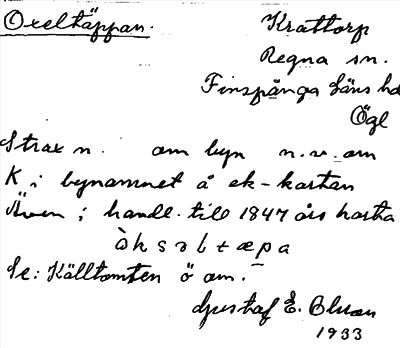 Oxeltäppan. Krattorp
Regna sn.
Finspånga läns hd
Ögl
Strax n. om byn n.v. om
K i bynamnet å ek-kartan
Även i handl. till 1847 års karta
òksəltæpa
Se: Källtomten ö om.
Gustaf E.
1933